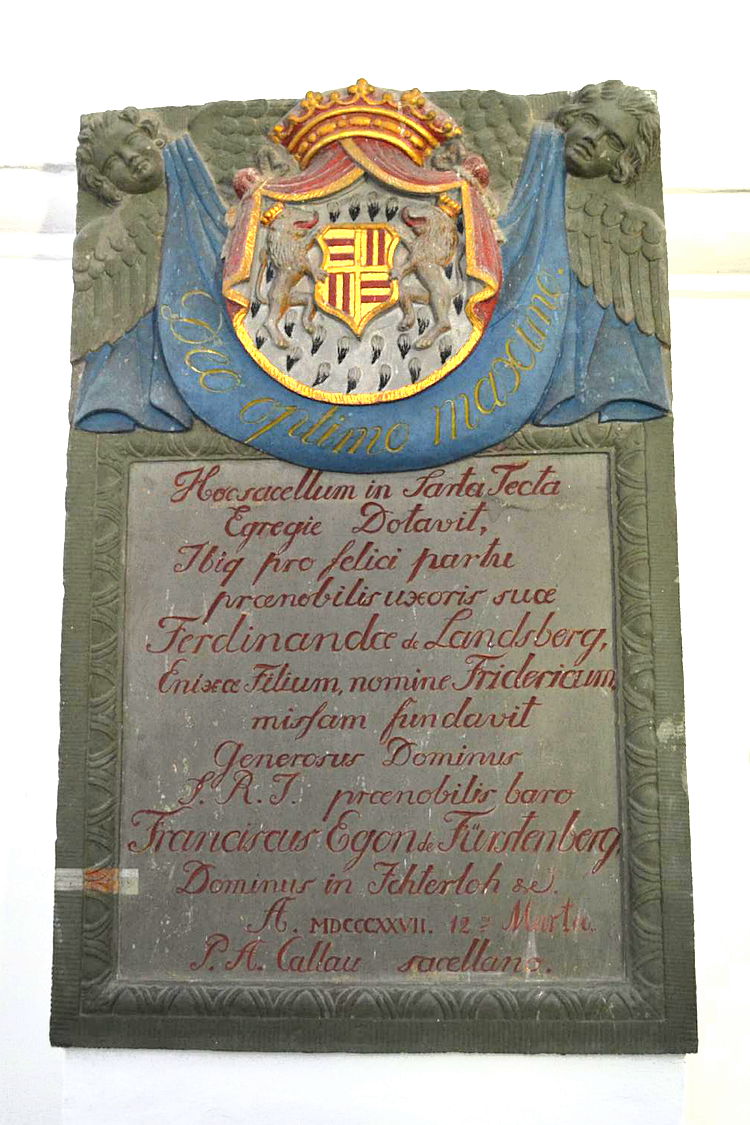 Deo optimo maximo.
Hocsacellum in Sarta Tecta
Egregie Dotavit,
Ibiq pro felici partu
prænobilis uxoris suæ
Ferdinandæ de Landsberg,
Enixæ Filium, nomine Fridericum,
missam fundavit
Generosus Dominus
S. R. I. prænobilis baro
Franciscus Egon de Fürstenberg,
Dominus in Ichterloh &c.
A. MDCCCXXVII. 12 Martii.
P. A. Callau sacellano.